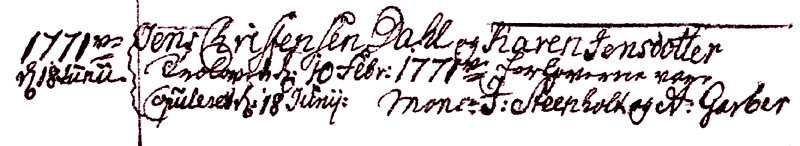 1771 Jens Christensen Dahl og Karen Jensdotter
d: 18 Junii Trolovet d: 10 Febr: 1771 Forloverne vare
Copuleret d: 18 Junij: Mons: J: Steenholt og A: Garber